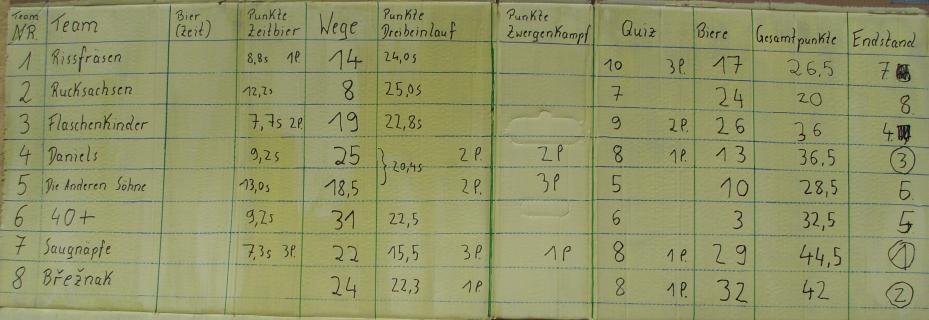 Team NR Team Bier (Zeit) Punkte Zeitbier Wege Punkte Dreibeinlauf Punkte Zwergenkampf Quiz Biere Gesamtpunkte Endstand
1 Rissfräsen 8,8s 1P. 14 24,0s 10 3P. 17 26,5 7
2 Rucksachsen 12,2s 8 25,0s 7 24 20 8.
3 Flaschenkinder 7,7s 2P. 19 22,8s 9 2P. 26 36 4.
4 Daniels 9,2s 25 } 20,4s 2P. 2P 8 1P. 13 36,5 3
5 Die Anderen Söhne 13,0s 18,5 2P. 3P 5 10 28,5 6.
6 40+ 9,2s 31 22,5 6 3 32,5 5
7 Saugnäpfe 7,3s 3P. 22 15,5 3P. 1P 8 1P. 29 44,5 1
8 Břežnak 24 22,3 1P 8 1P. 32 42 2